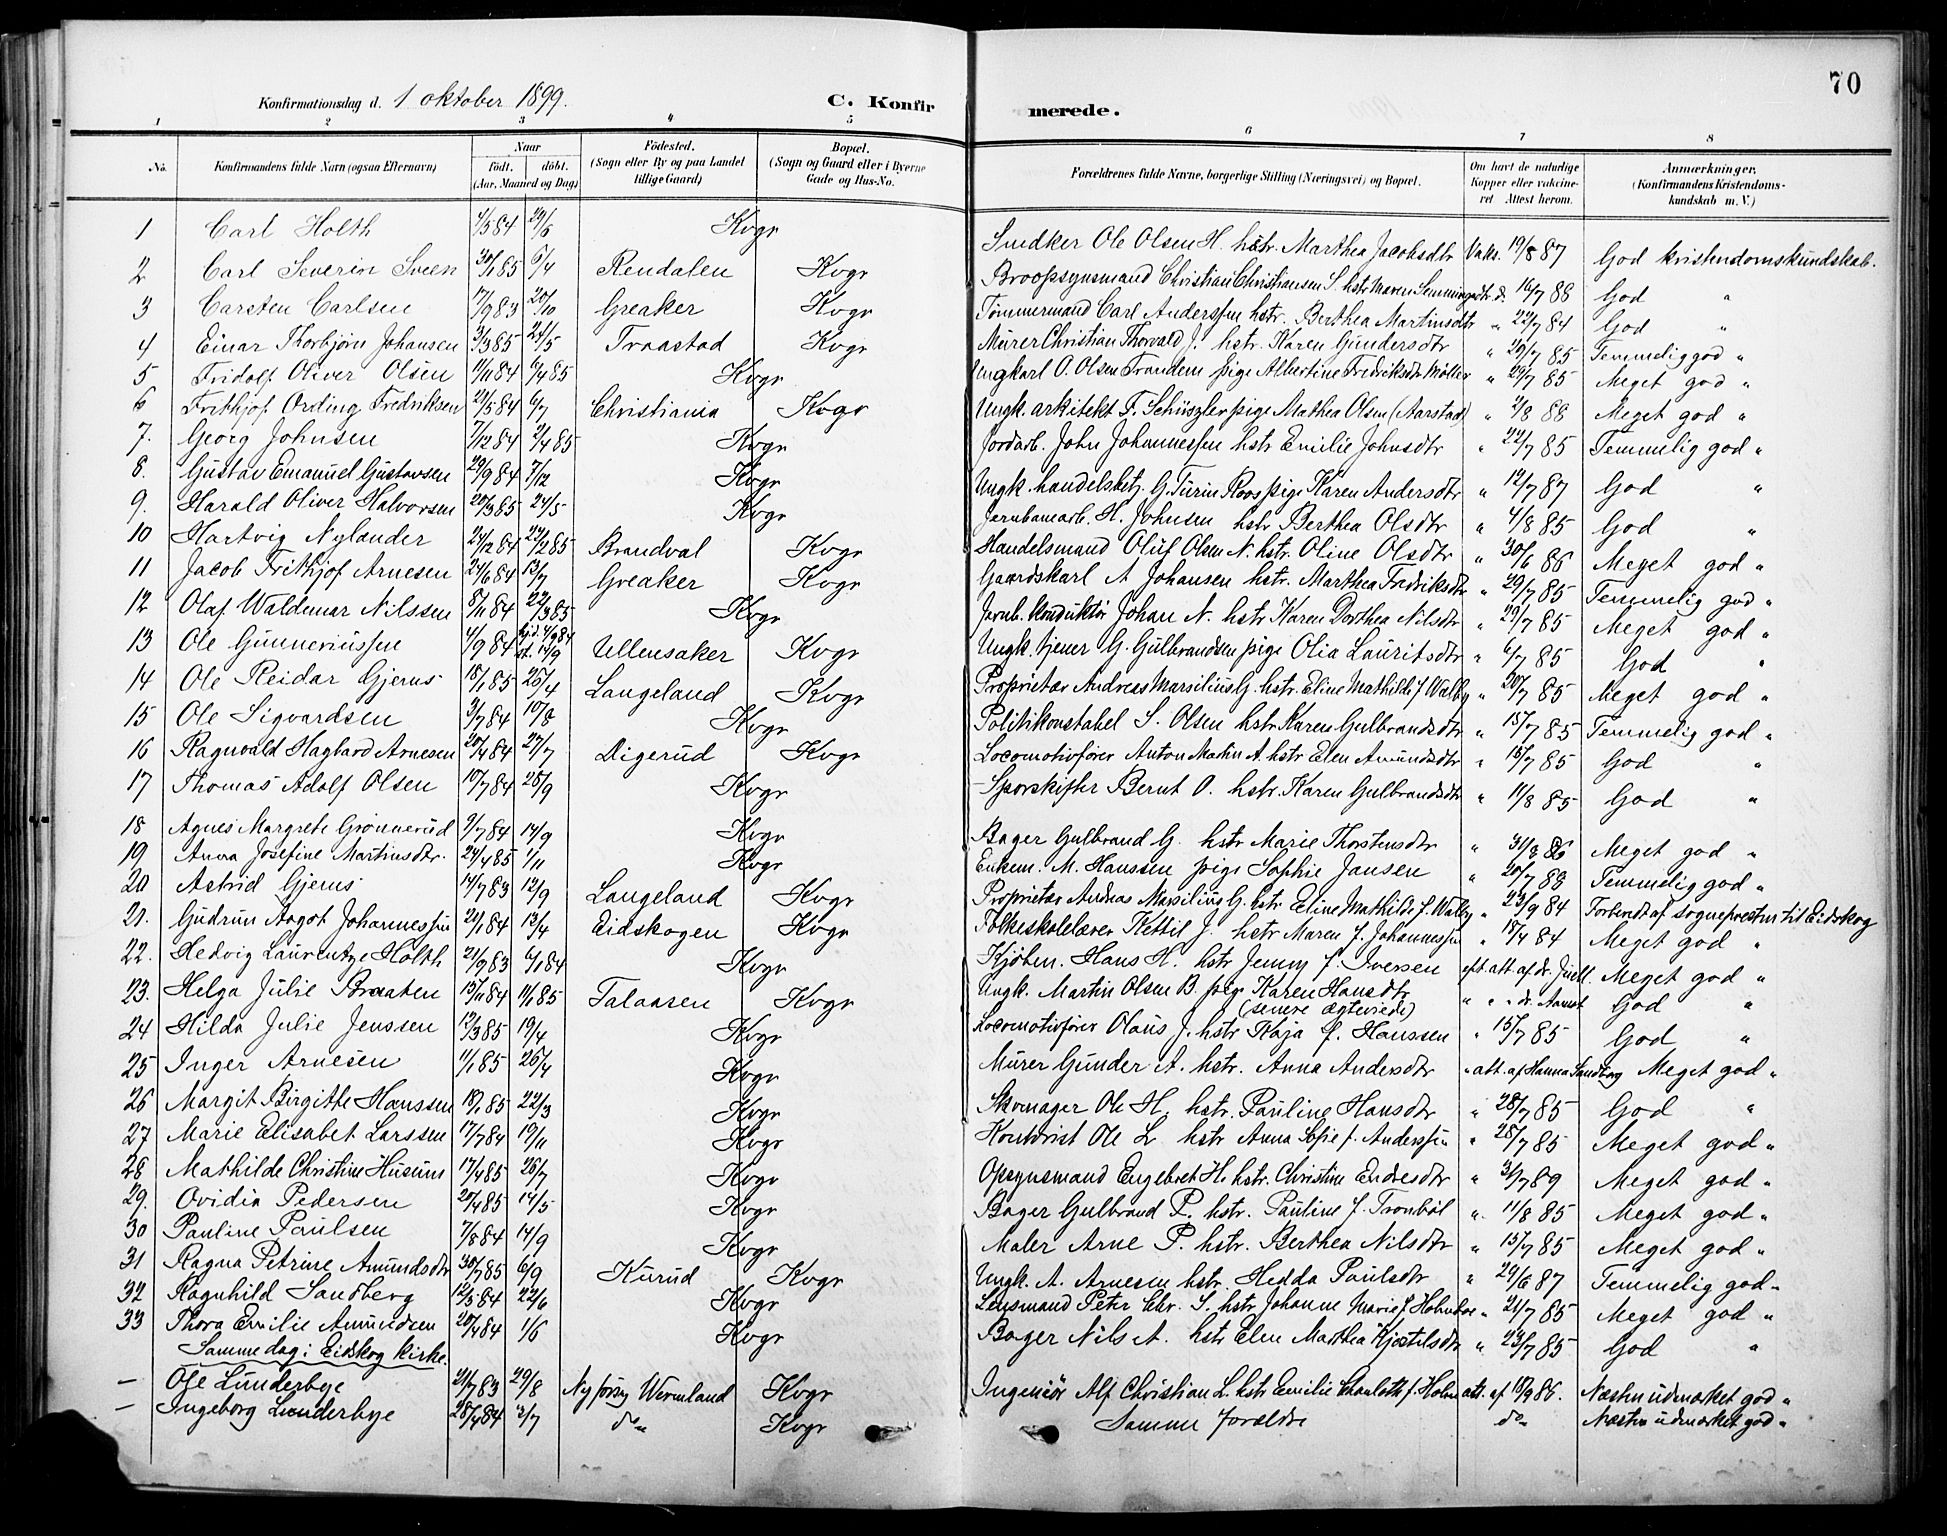 70
Konfirmationsdag d. 1 oktober 1899.
C. Konfirmerede.
1 2 3 4 5 6 7 8
No. Konfirmandens fulde Navn (ogsaa Efternavn) Naar født. døbt. (Aar, Maaned og Dag) Fødested. (Sogn eller By og paa Landet tillige Gaard) Bopæl. (Sogn og Gaard eller i Byerne Gade og Hus-No. Forældrenes fulde Navne, borgerlige Stilling (Næringsvei) og Bopæl. Om havt de naturlige Kopper eller vakcineret. Attest herom. Anmærkninger. (Konfirmandens Kristendomskundskab m. V.)
1 Carl Holth 4/5 84 29/6 Kvgr Snedker Ole Olsen H. hstr. Marthea Jacobsdtr Vaks. 19/8 87 God kristendomskundskab.
2 Carl Severin Sveen 30/1 85 6/4 Rendalen Kvgr Broopsynsmand Christian Christiansen S. hstr Maren Semmingsdtr d. 16/7 88 God "
3 Carsten Carlsen 17/9 83 20/10 Greaker Kvgr Tømmermand Carl Anderssen hstr. Berthea Martinsdtr " 22/7 84 God "
4 Einar Thorbjørn Johansen 3/3 85 24/5 Traastad Kvgr Murer Christian Thorvald J. hstr. Karen Gundersdtr " 20/7 85 Temmelig god "
5 Fridolf Oliver Olsen 11/11 84 6/4 85 Kvgr Ungkarl O. Olsen Trandem pige Albertine Fredriksdtr Møller " 29/7 85 Meget god "
6 Frithjof Ording Fredriksen 29/5 84 6/7 Christiania Kvgr Ungk. arkitekt F. Schüszler pige Mathea Olsen (Aarstad) " 2/8 88 Meget god "
7. Georg Johnsen 7/12 84 2/4 85 Kvgr Jordarb. John Johannessen hstr Emilie Johnsdtr " 22/7 85 Temmelig god "
8. Gustav Emanuel Gustavsen 29/9 84 7/12 Kvgr Ungk. handelsbetj. G. Turin Roos pige Karen Andersdtr " 12/7 87 God "
9. Harald Oliver Halvorsen 20/3 85 24/5 Kvgr Jernbanearb. H. Johnsen hstr Berthea Olsdtr " 4/8 85 God "
10 Hartvig Nylander 24/12 84 22/2 85 Brandval Kvgr Handelsmand Oluf Olsen N. hstr. Oline Olsdtr " 30/6 86 Meget god "
11 Jacob Frithjof Arnesen 24/6 84 13/7 Greaker Kvgr Gaardskarl A Johansen hstr. Marthea Fredriksdtr " 29/7 85 Temmelig god "
12 Olaf Waldemar Nilssen 8/11 84 22/3 85 Kvgr Jernb. konduktør Johan N. hstr Karen Dorthea Nilsdtr " 29/7 85 Meget god "
13 Ole Gunneriussen 4/9 84 hjd. 4/9 84 st. 14/9 Ullensaker Kvgr Ungk. tjener G. Gulbrandsen pige Olia Lauritsdtr " 6/7 85 God "
14 Ole Reidar Gjerus 18/1 85 25/4 Langeland Kvgr Proprietær Andreas Marsilius G. hstr. Eline Mathilde f. Walby " 20/7 85 Meget god "
15 Ole Sigvardsen 3/7 84 10/8 Kvgr Politikonstabel S. Olsen hstr Karen Gulbrandsdtr " 15/7 85 Temmelig god "
16 Ragnvald Hagbard Arnesen 20/4 84 27/7 Digerud Kvgr Locomotivfører Anton Martin A. hstr Elen Amundsdtr " 15/7 85 God "
17 Thomas Adolf Olsen 19/7 84 28/9 Kvgr Sporskifter Bernt O. hstr. Karen Gulbrandsdtr " 11/8 85 God "
18 Agnes Margrete Grønnerud 9/7 84 14/9 Kvgr Bager Gulbrand G. hstr Marie Thorstensdtr " 31/8 86 Meget god "
19 Anna Josefine Martinsdtr. 24/4 85 1/11 Kvgr Enkem. M. Hanssen pige Sophie Jansen " 20/7 88 Temmelig god "
20 Astrid Gjerus 14/7 83 12/9 Langeland Kvgr Proprietær Andreas Marsilius G. hstr Eline Mathilde f. Walby " 23/9 84 Forberedt af sognepresten til Eidskog
21. Gudrun Aagot Johannessen 20/1 84 13/4 Eidskogen Kvgr Folkeskolelærer Kettil J. hstr Maren f. Johannessen " 18/4 84 Meget god "
22. Hedvig Laurentze Holth 21/9 83 6/1 84 Kvgr Kjøbm. Hans H. hstr Jenny f. Iversen eft. att. af dr. Juell. Meget god "
23. Helga Julie Braaten 15/11 84 11/1 85 Talaasen Kvgr Ungk. Martin Olsen B. pige Karen Hansdtr (senere ægteviede) " " " dr. Aamot God "
24 Hilda Julie Jenssen 12/3 85 19/4 Kvgr Locomotivfører Olaus J. hstr Kaja f. Hanssen " 15/7 85 God "
25 Inger Arnesen 11/1 85 25/4 Kvgr Murer Gunder A. hstr. Anna Andersdtr " att. af Hanna Sandberg Meget god "
26 Margit Birgitte Hanssen 18/1 85 22/3 Kvgr Skomager Ole H. hstr. Pauline Hansdtr " 28/7 85 God "
27 Marie Elisabet Larssen 17/7 84 19/11 Kvgr Kontorist Ole L hstr Anna Sofie f. Anderssen " 28/7 85 Meget god "
28 Mathilde Christine Husum 17/4 85 26/7 Kvgr Opsynsmand Engebret H. hstr. Christine Endresdtr " 31/7 89 Meget god "
29. Ovidia Pedersen 20/4 85 14/5 Kvgr Bager Gulbrand P. hstr. Pauline f. Tronbøl " 11/8 85 Meget god "
30 Pauline Paulsen 7/8 84 14/9 Kvgr Maler Arne P. hstr. Berthea Nilsdtr " 15/7 85 Meget god "
31 Ragna Petrine Amundsdtr 30/7 85 6/9 Kurud Kvgr Ungk. A. Arnesen hstr. Hedda Paulsdtr " 29/6 87 Temmelig god "
32 Ragnhild Sandberg 12/5 84 22/6 Kvgr Lensmand Peter Chr. S. hstr Johanne Marie f. Holmboe " 21/7 85 Meget god "
33 Thora Emilie Amundsen 20/4 84 1/6 Kvgr Bager Nils A. hstr Elen Marthea Kjøstelsdtr " 23/7 85 God "
Samme dag i Eidskog kirke.
— Ole Lunderbye 21/7 83 29/8 Ny församl. Wermland Kvgr Ingeniør Alf Christian L. hstr Emilie Charlotte f. Holm att. af 18/9 86. Næsten udmærket god "
— Ingeborg Lunderbye 28/4 84 3/7 do Kvgr Samme forældre do Næsten udmærket god "